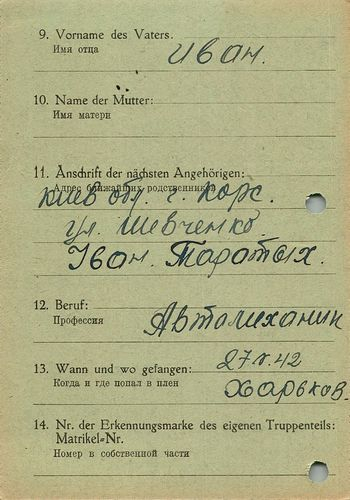 9. Vorname des Vaters.
Имя отца
Иван.
10. Name der Mutter:
Имя матери
11. Anschrift der nächsten Angehörigen:
Адрес ближайших родственников
киев обл. г. Корс.
ул. Шевченко
Іван. Таратых.
12. Beruf:
Профессия
Автомиханик
13. Wann und wo gefangen:
Когда и где попал в плен
27 42
Харьков.
14. Nr. der Erkennungsmarke des eigenen Truppenteils:
Matrikel-Nr.
Номер в собственной части